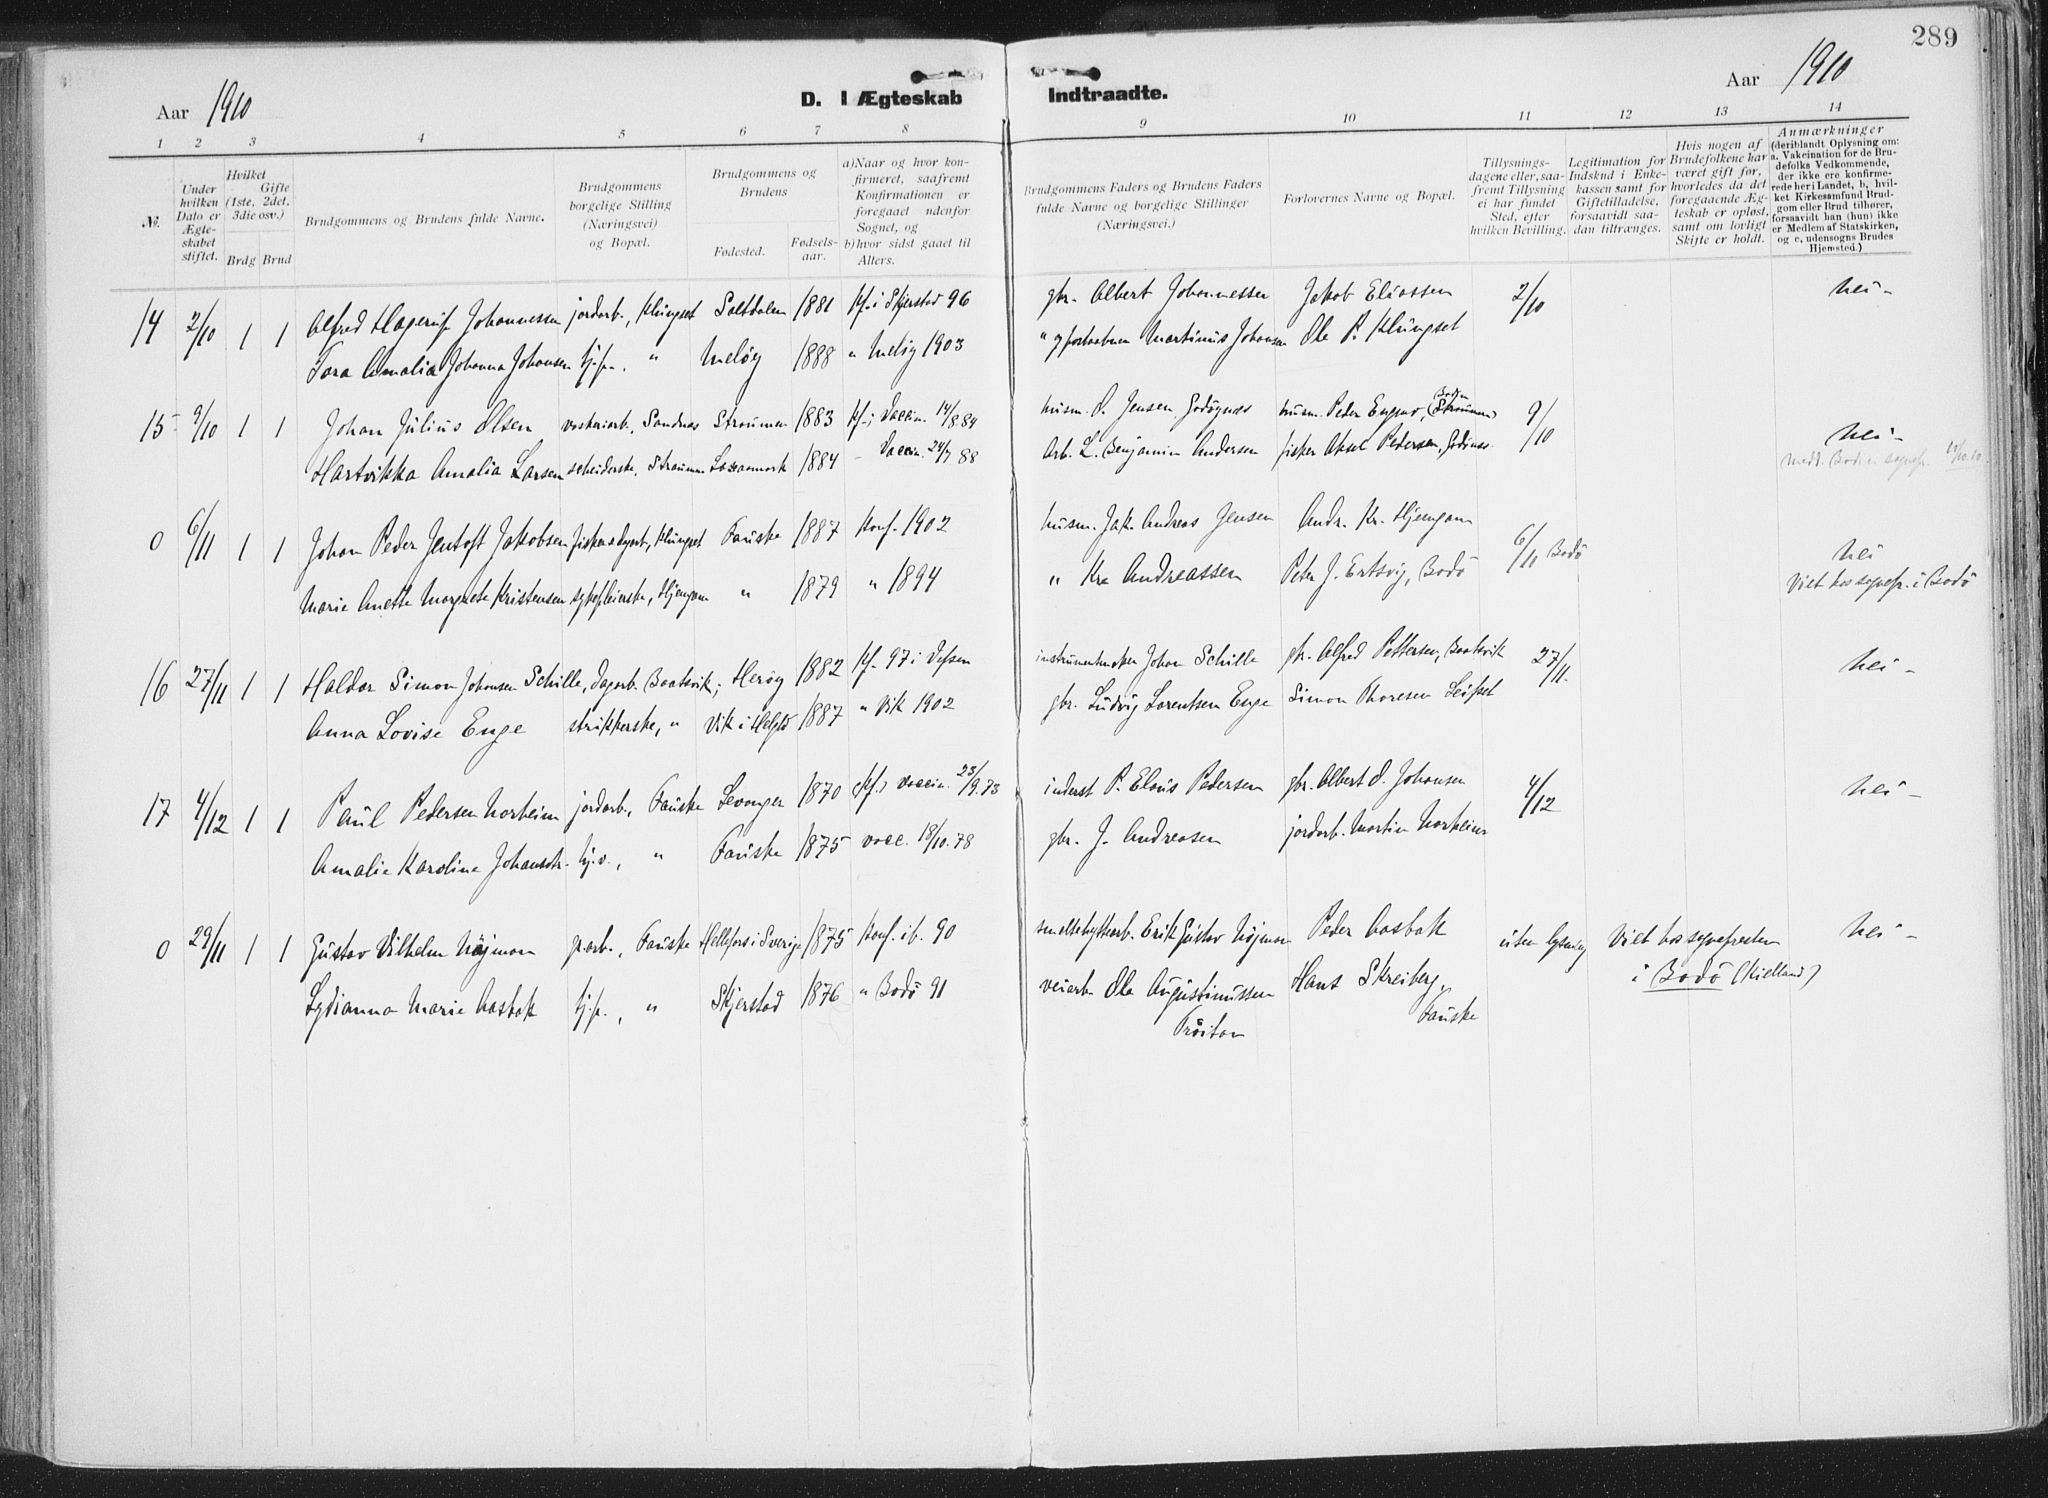 289
Aar 1910
D. I Ægteskab Indtraadte.
Aar 1910
1 2 3 4 5 6 7 8 9 10 11 12 13 14
№.
Under hvilken Dato er Ægteskabet stiftet.
Hvilket Gifte (1ste, 2det, 3die osv.)
Brdg Brud
Brudgommens og Brudens fulde Navne.
Brudgommens borgelige Stilling (Næringsvei) og Bopæl.
Brudgommens og Brudens
Fødested. Fødselsaar.
a) Naar og hvor konfirmeret, saafremt Konfirmationen er foregaaet udenfor Sognet, og
b) hvor sidst gaaet til Alters.
Brudgommens Faders og Brudens Faders fulde Navne og borgelige Stillinger (Næringsvei.)
Forlovernes Navne og Bopæl.
Tillysningsdagene eller, saafremt Tillysning ei har fundet Sted, efter hvilken Bevilling.
Legitimation for Indskud i Enkekassen samt for Giftetilladelse, forsaavidt saadan tiltrænges.
Hvis nogen af Brudefolkene har været gift før, hvorledes da det foregaaende Ægteskab er opløst, samt om lovligt Skifte er holdt.
Anmærkninger (deriblandt Oplysning om: a. Vakcination for de Brudefolks Vedkommende, der ikke ere konfirmerede her i Landet, b, hvilket Kirkesamfund Brudgom eller Brud tilhører, forsaavidt han (hun) ikke er Medlem af Statskirken, og c, udensogns Brudes Hjemsted.)
14 2/10 1 1 Alfred Hagerup Johannessen jordarb., Klungset Saltdalen 1881 Kf. i Skjerstad 96 gbr. Albert Johannessen Jakob Eliassen 2/10 nei -
Tora Amalia Johanna Johansen tj.p., " Meløy 1888 " Meløy 1903 " Martinus Johansen Ole P. Klungset
15 9/10 1 1 Johan Julius Olsen vaskeriarb., Sandnes Strømmen 1883 Kf. i Vaccin. 14/8 84 husm. O. Jensen, Godøynes husm. Peder Engmo, Bodin (Strømmen) 9/10 nei -
Hartvikka Amalia Larsen Straumm 1884 - Vaccin. 24/9 88 Arb. L. Benjamin Andersen fisker Aksel Pedersen, Godønes medd. Bodin sognepr. 10/10.10.
0 6/11 1 1 Johan Peder Jentoft Jakobsen Klungset Fauske 1887 Konf. 1902 husm. Jak. Andreas Jensen Andr. Kr. Hjemgam 6/11 Bodö nei
Marie Anette Margrete Kristensen sykepleierske, Hjemgam " 1879 " 1894 " Kr. Andreassen Peter J. Ertsvig, Bodö Viet hos sognepr. i Bodö
16 27/11 1 1 Haldor Simon Johansen Schille, dagarb. Baatsvik; Herøy 1882 Kf. 97 i Vefsen instrumentmaker Johan Schille gbr. Alfred Pettersen, Baatsvik 27/11. nei -
Anna Lovise Enge strikkerske, " Vik i Helgld 1887 " Vik 1902 gbr. Ludvig Lorentsen Enge Simon Thoresen Leifset
17 4/12 1 1 Paul Pedersen Norheim jordarb., Fauske Levanger 1870 (Kf.) vaccin. 23/9.73 inderst P. Elaus Pedersen gbr. Albert O. Johansen 4/12 nei -
Amalie Karoline Johansdtr. " Fauske 1875 vacc. 18/10.78 gbr. J. Andreasen jordarb. Martin Norheim
0 29/11 1 1 Gustav Vilhelm Nöjman gr.arb., Fauske Hellefors i Sverige 1875 Konf. ib. 90 smeltehyttearb. Erik Gustav Nöjman Peder Aasbak uten lysning Viet hos sognepresten nei -
Lydianna Marie Aasbak tj.p., " Skjerstad 1876 " Bodö 91 veiarb. Ole Augustinussen Hans Skreiberg, i Bodö (Kielland)
Tröiton Fauske